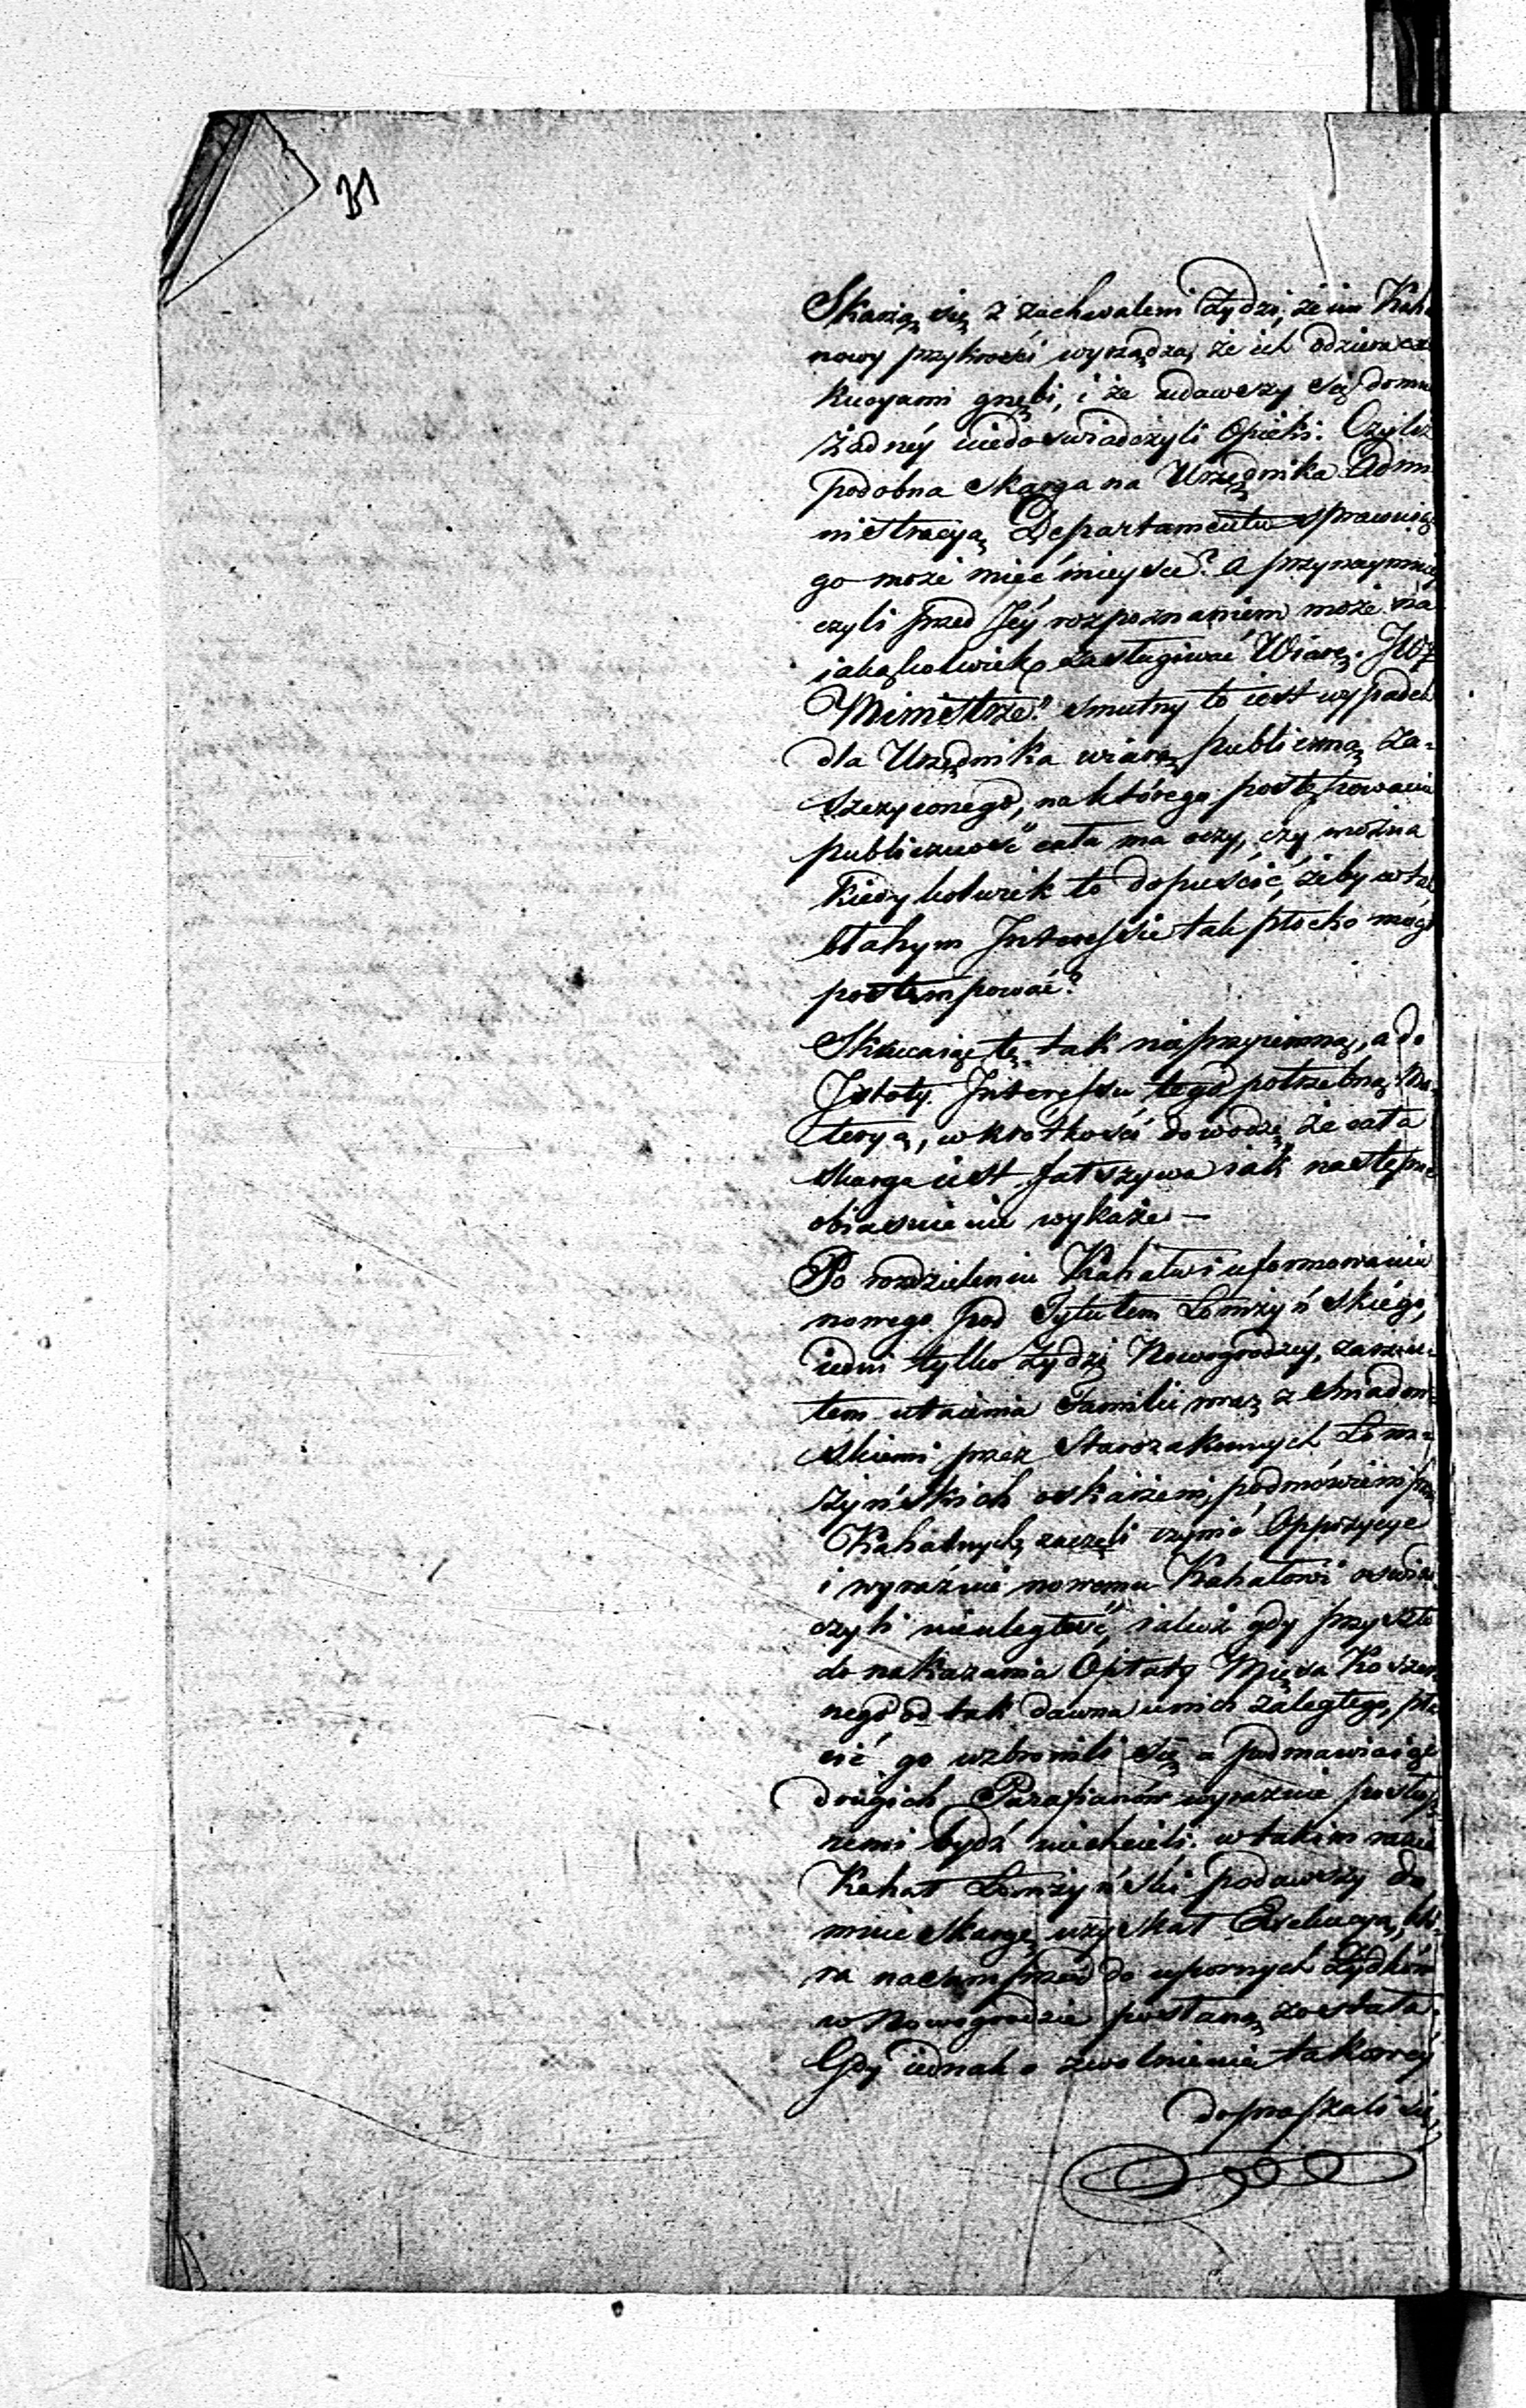 31
Skarzą się z zuchwalemi Żydzi, że im Kaha
nowy przykrości wyrządza, że ich odziera exe
kucyami gnębi, i że udawszy się do mnie
żadnéy niedoswiadczyli Opieki. Czyliż
podobna skarga na Urzędnika Admi
nistracyą Departamentu sprawuią
go może mieć mieysce? a przynaymniey
czyli przed Jéy rozpoznaniem może na
iakąkolwiek zasługiwać Wiarę. JWż
Ministrze! smutny to iest wypadek
dla Urzędnika wiarą publiczną za-
szczyconego, na którego postępowania
publiczność cała ma oczy, czy można
kiedykolwiek to dopuścić, żeby w tak
błahym Interessie tak płocho mógł
postempować?
Skracaiąc tę tak nieprzyiemną, a do
Istoty Interessu tego potrzebną Ma-
teryą, w krótkości dowodzę, że cała
skarga iest fałszywa iak następne
obiasnienie wykaże —
Po rozdzieleniu Kahału i uformowaniu
nowego pod Tytułem Łomżyńskiégo,
iedni tylko Żydzi Nowogrodzcy, zarzu-
tem utaienia Familii wraz z Sniadow-
skiemi przez Starozakonnych Łom-
żyńskich oskarżeni, podmówieni przez
Kahalnych, zaczęli czynić Oppozycye
i wyraźnie nowemu Kahałowi oswiad
czyli nieuległość, iakoż gdy przyszło
do nakazania Opłaty Mięsa Koszer
nego od tak dawna u nich zaległego, pła
cić go wzbronili się a podmawiaiąc
drugich Parafianów wyraźnie posłusz
nemi bydź niechcieli. w takim razie
Kahał Łomżyński podawszy do
mnie skargę, uzyskał Exekucyą, któ-
ra nasamprzód do upornych Żydków
w Nowogrodzie posłaną została.
Gdy iednak o zwolnienie takowéy
dopraszali się,